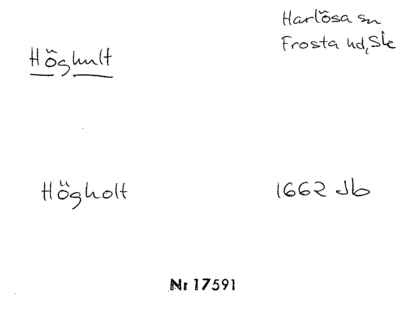 Harlösa sn
Frosta hd, Sk
Höghult
Högholt 1662 Jb
Nr 17591